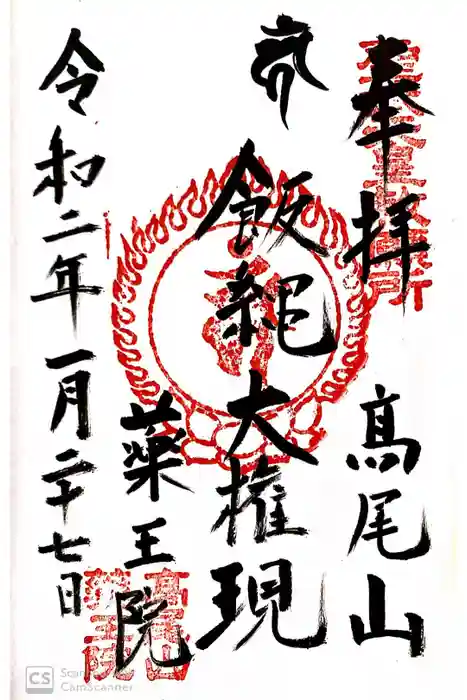 奉拝
高尾山
飯縄大権現
薬王院
令和二年一月二十七日
CS
CamScanner